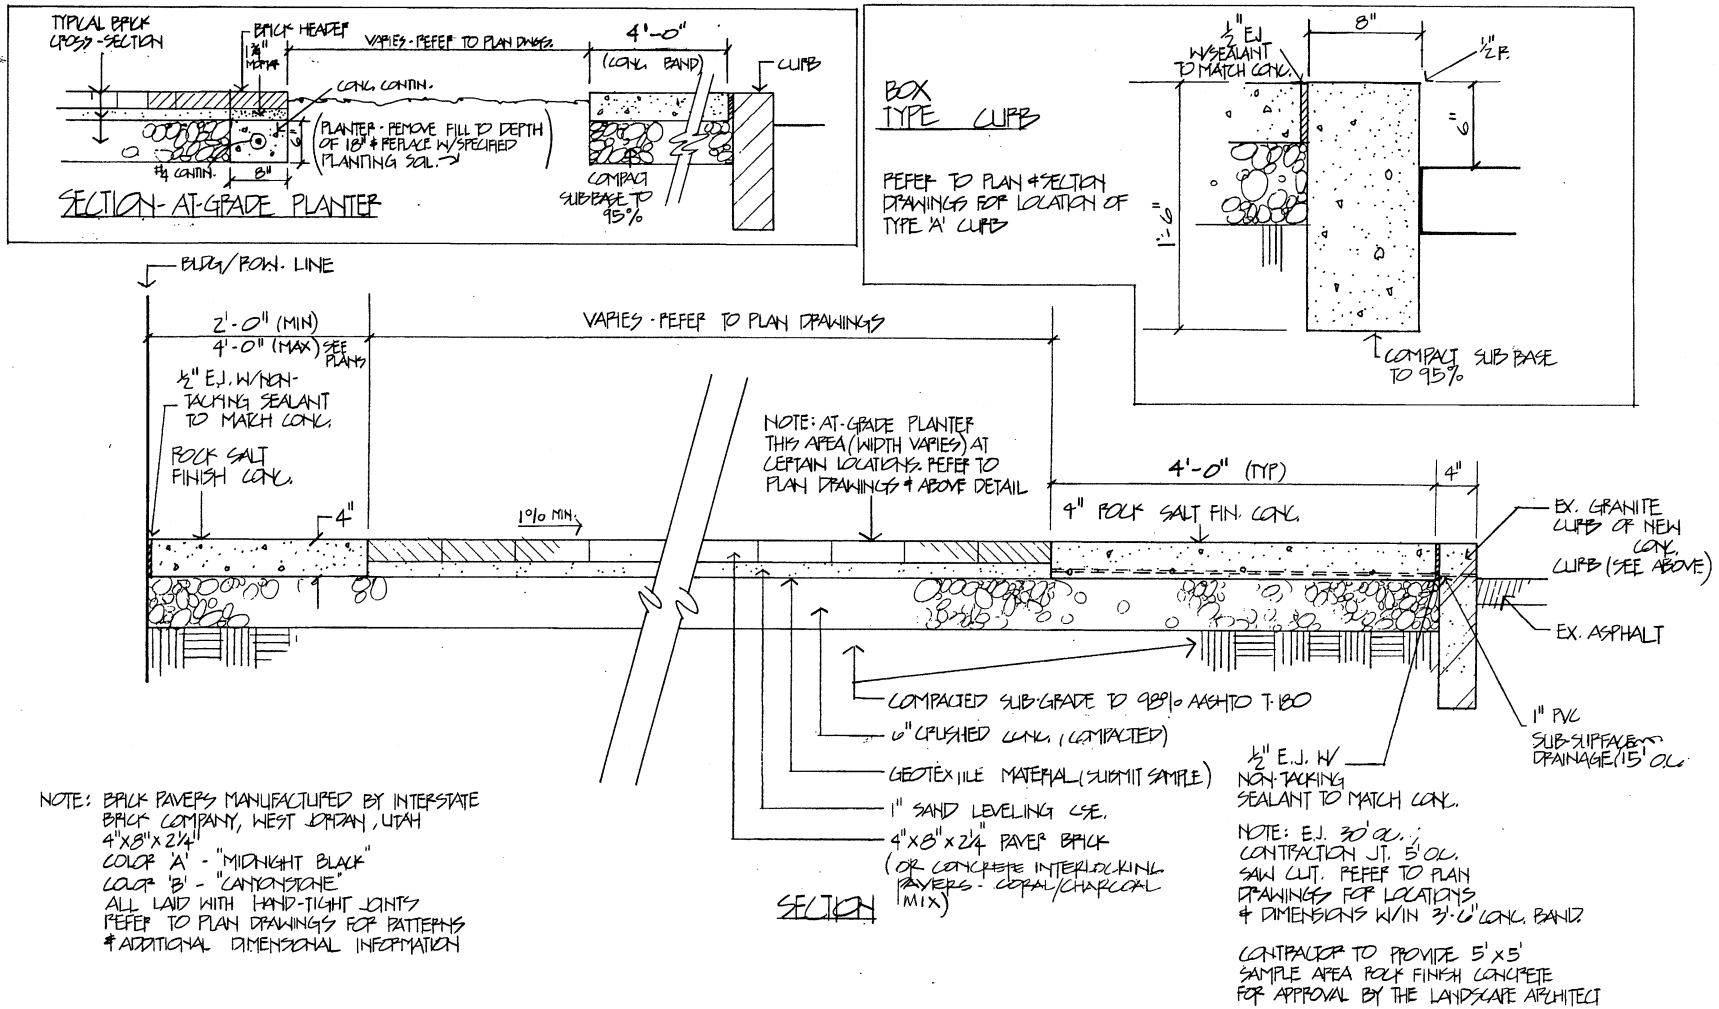 TYPICAL BRICK
CROSS-SECTION
BRICK HEADER
3/4"
MORTAR
VARIES - REFER TO PLAN DWGS.
4'-0"
(CONC. BAND)
CURB
CONC. CONTIN.
(PLANTER - REMOVE FILL TO DEPTH
OF 18" & REPLACE W/SPECIFIED
PLANTING SOIL.)
6"
#4 CONTIN.
8"
COMPACT
SUB-BASE TO
95%
SECTION - AT-GRADE PLANTER
BOX
TYPE CURB
REFER TO PLAN & SECTION
DRAWINGS FOR LOCATION OF
TYPE 'A' CURB
½" E.J.
W/SEALANT
TO MATCH CONC.
8"
½"R.
6"
1'-6"
COMPACT SUB BASE
TO 95%
BLDG/ROW. LINE
2'-0" (MIN)
4'-0" (MAX) SEE
PLANS
VARIES - REFER TO PLAN DRAWINGS
½" E.J. W/NON-
TACKING SEALANT
TO MATCH CONC.
ROCK SALT
FINISH CONC.
4"
1% MIN.
NOTE: AT-GRADE PLANTER
THIS AREA (WIDTH VARIES) AT
CERTAIN LOCATIONS. REFER TO
PLAN DRAWINGS & ABOVE DETAIL
4'-0" (TYP)
4"
4" ROCK SALT FIN. CONC.
EX. GRANITE
CURB OF NEW
CONC.
CURB (SEE ABOVE)
EX. ASPHALT
1" PVC
SUB-SURFACE
DRAINAGE/15' O.C.
COMPACTED SUB-GRADE TO 98% AASHTO T-180
6" CRUSHED CONC. (COMPACTED)
GEOTEXTILE MATERIAL (SUBMIT SAMPLE)
1" SAND LEVELING CSE.
4"X8"X2¼" PAVER BRICK
(OR CONCRETE INTERLOCKING
PAVERS - CORAL/CHARCOAL
MIX)
SECTION
½" E.J. W/
NON-TACKING
SEALANT TO MATCH CONC.
NOTE: E.J. 30' O.C. ;
CONTRACTION JT. 5' O.C.
SAW CUT. REFER TO PLAN
DRAWINGS FOR LOCATIONS
& DIMENSIONS W/IN 3'-6" CONC. BAND.
CONTRACTOR TO PROVIDE 5' X 5'
SAMPLE AREA ROCK FINISH CONCRETE
FOR APPROVAL BY THE LANDSCAPE ARCHITECT
NOTE: BRICK PAVERS MANUFACTURED BY INTERSTATE
BRICK COMPANY, WEST JORDAN, UTAH
4"X8"X2¼"
COLOR 'A' - "MIDNIGHT BLACK"
COLOR 'B' - "CANYONSTONE"
ALL LAID WITH HAND-TIGHT JOINTS
REFER TO PLAN DRAWINGS FOR PATTERNS
& ADDITIONAL DIMENSIONAL INFORMATION